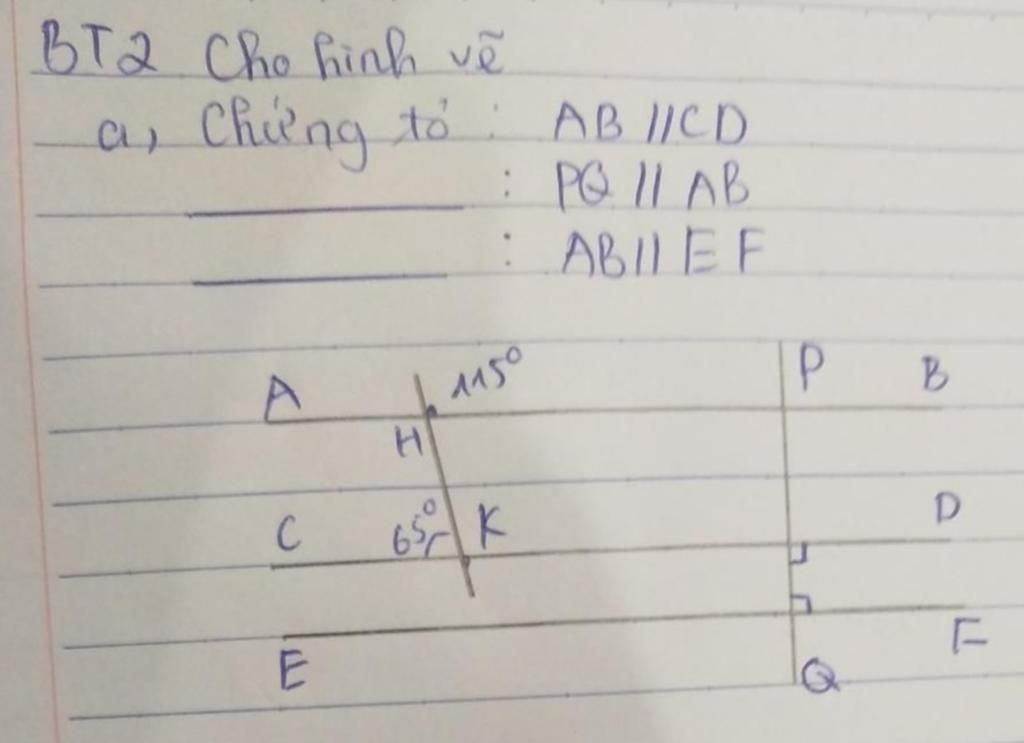 BT2 Cho hình vẽ
a, Chứng tỏ : AB // CD
: PQ // AB
: AB // EF
A 115° P B
H
C 65° K D
E Q F